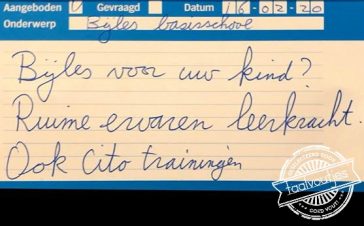 Aangeboden V Gevraagd Datum 16-02-20
Onderwerp Bijles basisschool
Bijles voor uw kind?
Ruime ervaren leerkracht.
Ook Cito trainingen
taalvoutjes
GOED FOUT!